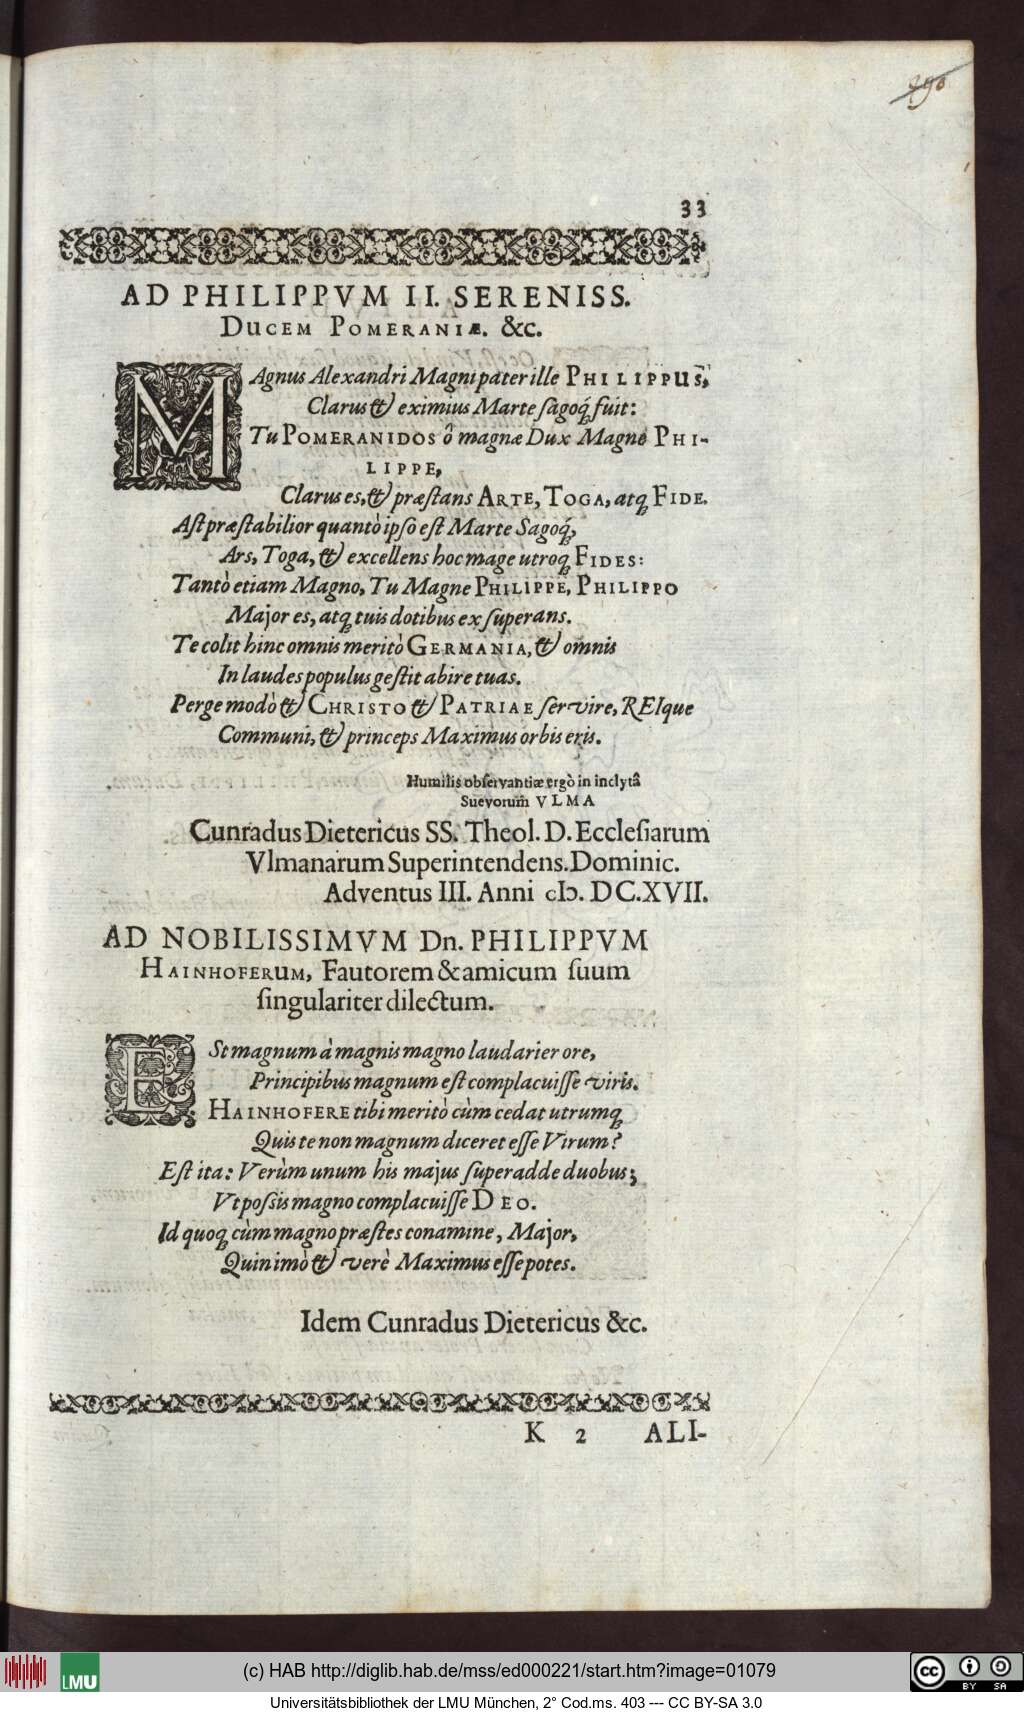 290
33
AD PHILIPPVM II. SERENISS.
DUCEM POMERANIÆ. &c.
MAgnus Alexandri Magni pater ille PHILIPPUS,
Clarus & eximius Marte sagoq́; fuit:
Tu POMERANIDOS ô magnæ Dux Magne PHI-
LIPPE,
Clarus es, & præstans ARTE, TOGA, atq; FIDE.
Ast præstabilior quantò ipso est Marte Sagoq́;,
Ars, Toga, & excellens hoc mage utroq; FIDES:
Tantò etiam Magno, Tu Magne PHILIPPE, PHILIPPO
Major es, atq; tuis dotibus exsuperans.
Te colit hinc omnis meritò GERMANIA, & omnis
In laudes populus gestit abire tuas.
Perge modò & CHRISTO & PATRIAE servire, REIque
Communi, & princeps Maximus orbis eris.
Humilis observantiæ ergò in inclytâ
Suevorum̃ VLMA
Cunradus Dietericus SS. Theol. D. Ecclesiarum
Vlmanarum Superintendens. Dominic.
Adventus III. Anni cIↄ. DC.XVII.
AD NOBILISSIMVM Dn. PHILIPPVM
HAINHOFERUM, Fautorem & amicum suum
singulariter dilectum.
ESt magnum à magnis magno laudarier ore,
Principibus magnum est complacuisse viris.
HAINHOFERE tibi meritò cùm cedat utrumq;
Quis te non magnum diceret esse Virum?
Est ita: Verùm unum his majus superadde duobus;
Vt possis magno complacuisse DEO.
Id quoq; cùm magno præstes conamine, Major,
Quinimò & verè Maximus esse potes.
Idem Cunradus Dietericus &c.
K 2 ALI-
LMU
(c) HAB http://diglib.hab.de/mss/ed000221/start.htm?image=01079
cc BY SA
Universitätsbibliothek der LMU München, 2° Cod.ms. 403 --- CC BY-SA 3.0